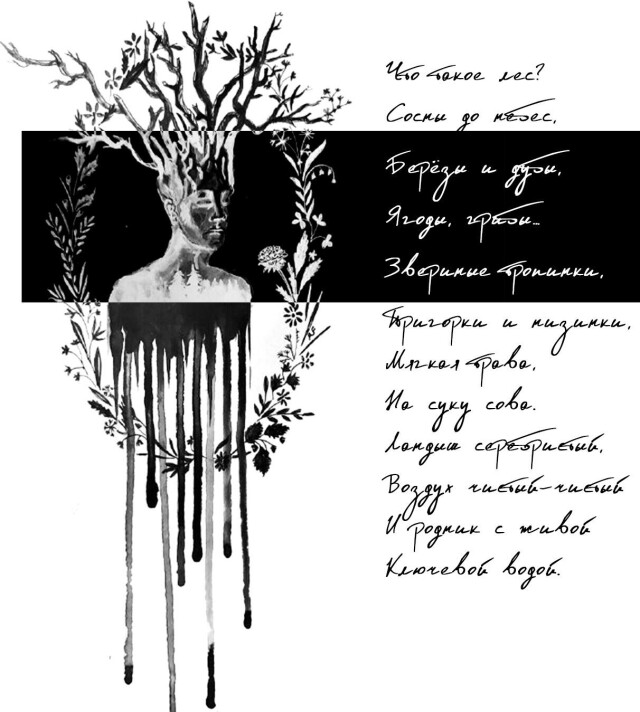 Что такое лес?
Сосны до небес,
Берёзы и дубы,
Ягоды, грибы...
Звериные тропинки,
Пригорки и низинки,
Мягкая трава,
На суку сова.
Ландыш серебристый,
Воздух чистый-чистый
И родник с живой
Ключевой водой.